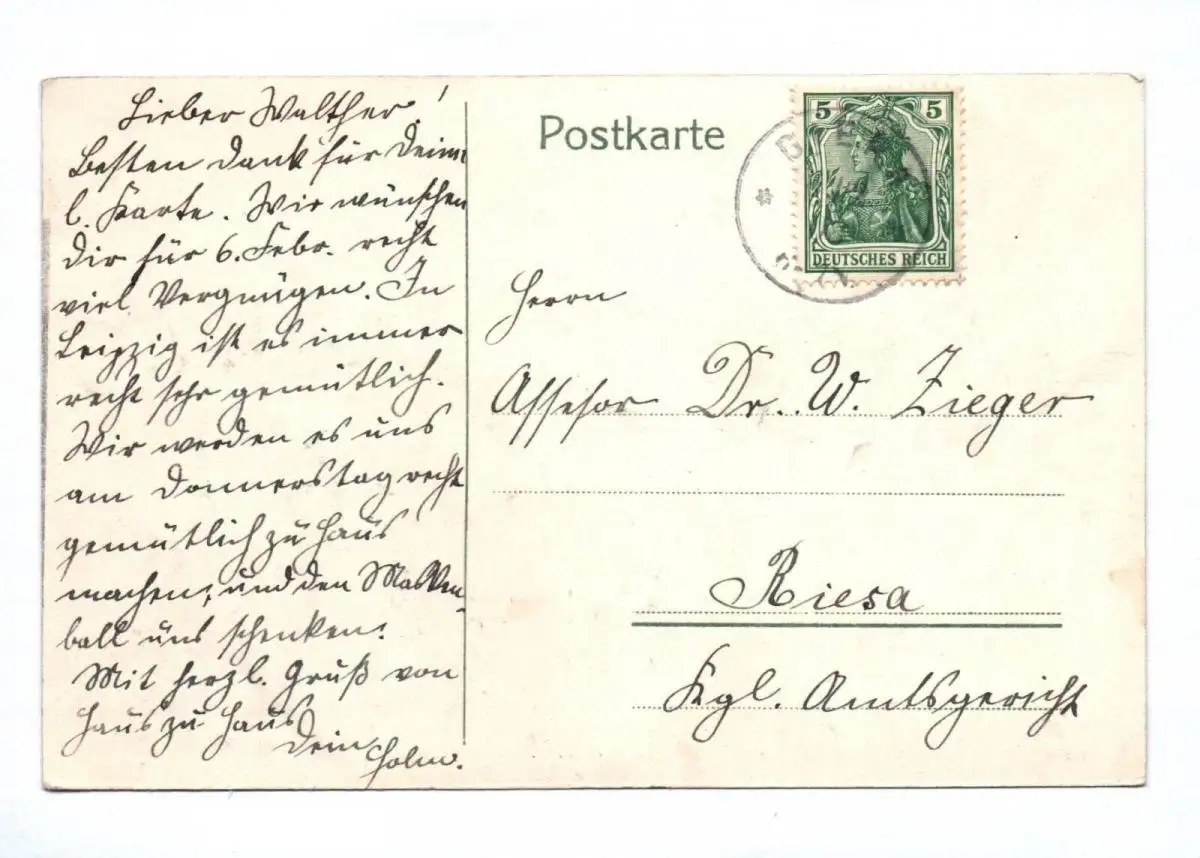 Lieber Walther!
Besten Dank für Deine
l. Karte. Wir wünschen
Dir für 6. Febr. recht
viel Vergnügen. In
Leipzig ist es immer
recht sehr gemütlich.
Wir werden es uns
am Donnerstag recht
gemütlich zu Haus
machen, und den Masken-
ball uns schenken.
Mit herzl. Gruß von
Haus zu Haus
Dein
Holm.
Postkarte
5 5
DEUTSCHES REICH
Herrn
Assesor Dr. W. Zieger
Riesa
Kgl. Amtsgericht